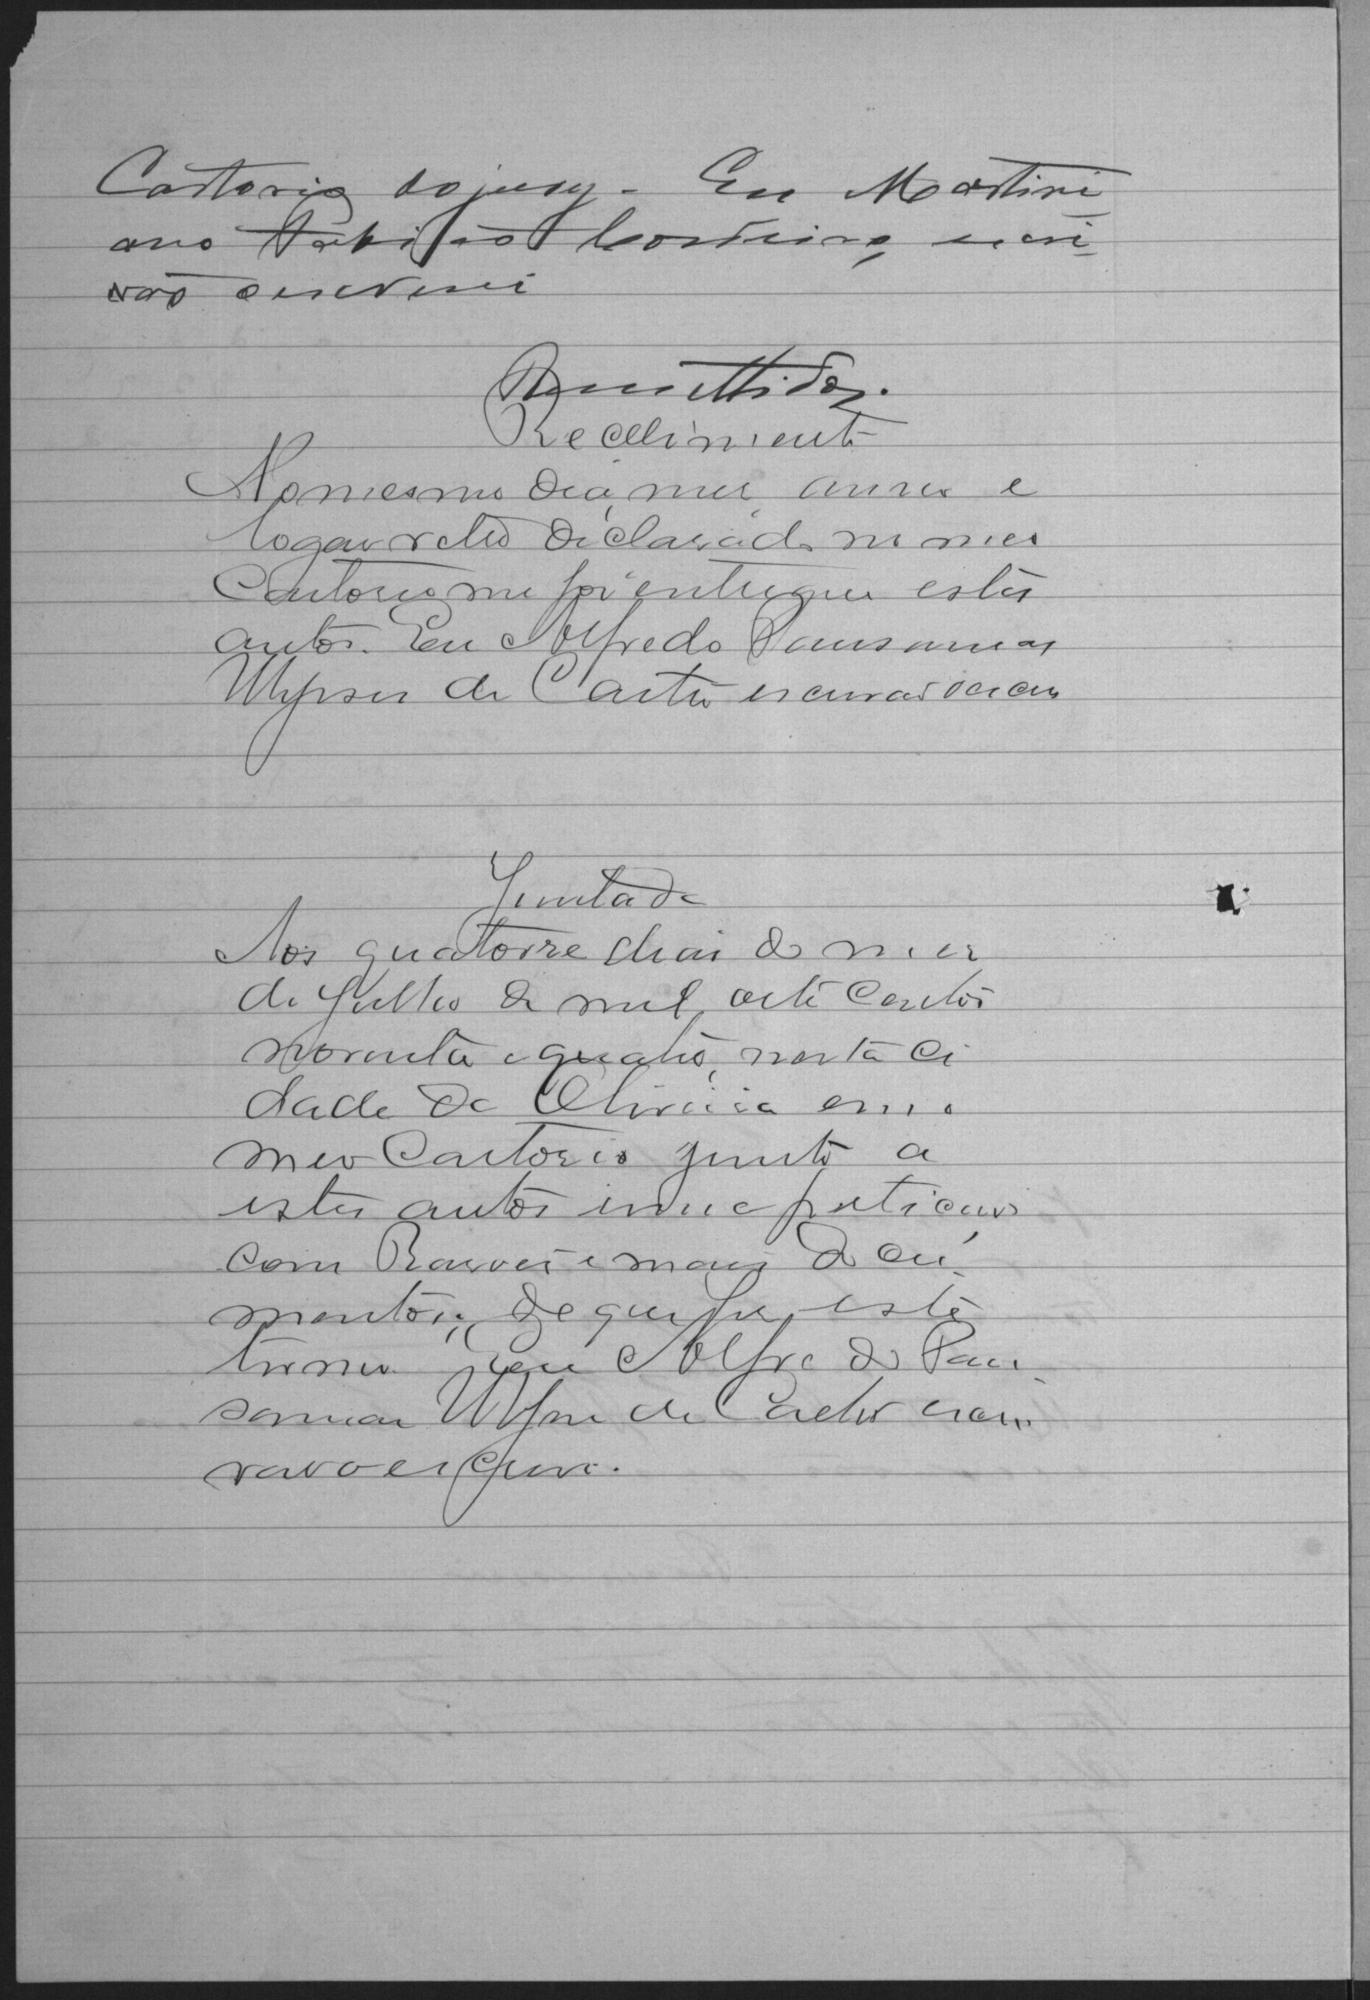 Cartorio do jury. Eu Martini
ano Cordeiro, escri
vão o escrevi
Remettidos.
Recebimento
No mesmo dia, mez, anno e
logar retro declarado no meu
Cartorio me foi entregue estes
autos. Eu Alfredo Pausanias
Ulysses de Castro escrivão
Juntada
Aos quatorze dias do mez
de Julho de mil oito centos
noventa e quatro, nesta ci
dade de Oliveira em o
meu Cartorio junto a
estes autos uma peticão
com Razoes e mais docu
mentos; de que fiz este
termo. Eu Alfredo Pau
sanias Ulysses de Castro escri
vão o escrevi.